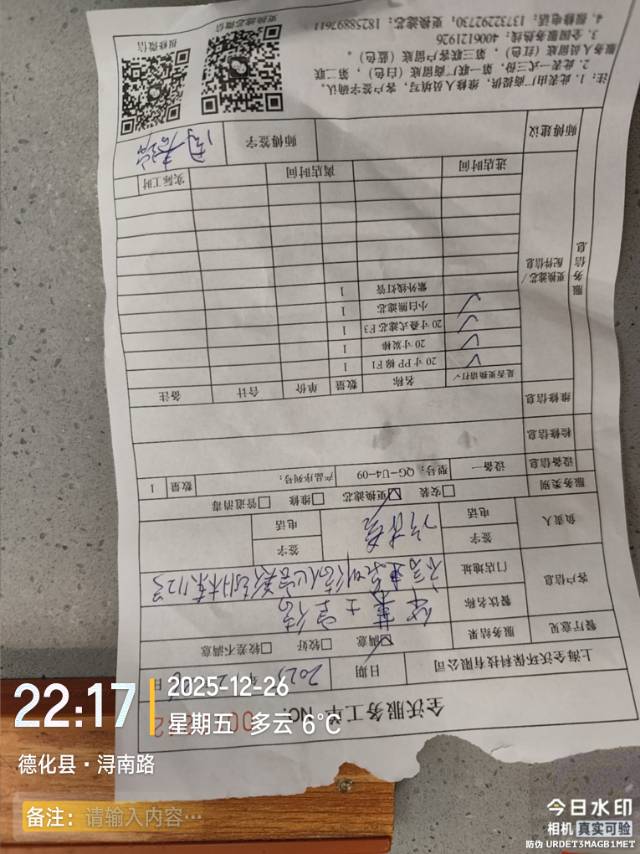 全沃服务工单 NO:
上海全沃环保科技有限公司 日期 2025年12月
餐厅意见 服务结果 满意 较好 较差不满意
客户信息 餐饮名称 华莱士宝信
门店地址
负责人 签字 签字
电话 电话
服务类别 安装 更换滤芯 维修 管道消毒
设备信息 设备一 型号: QG-U4-09 产品序列号: 数量 1
检修信息
维修信息
服务信息 更换滤芯/配件信息 是否更换请打√ 名称 数量 单价 合计 备注
√ 20寸PP棉F1 1
√ 20寸炭棒 1
√ 20寸叠式滤芯F3 1
√ 小白熊滤芯 1
紫外线灯管 1
进店时间 离店时间 实际工时
师傅建议 师傅签字
注: 1. 此表由厂商提供, 维修人员填写, 客户签字确认。
2. 此表一式三份, 第一联厂商留底(白色), 第二联服务人员留底(红色), 第三联客户留底(蓝色)。
3. 全国服务热线: 4006121926
4. 报修电话: 13732292730, 更换滤芯: 18258897611
报修微信 更换滤芯微信
22:17
2025-12-26
星期五 多云 6℃
德化县·浔南路
备注: 请输入内容…
今日水印
相机 真实可验
防伪 URDET3MAGB1MET